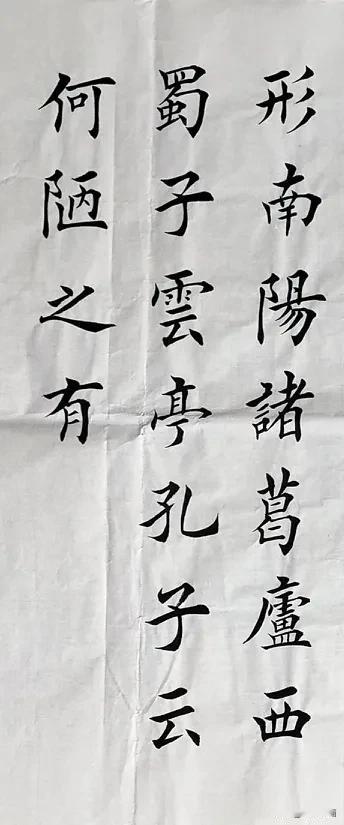 形南陽諸葛廬西
蜀子雲亭孔子云
何陋之有